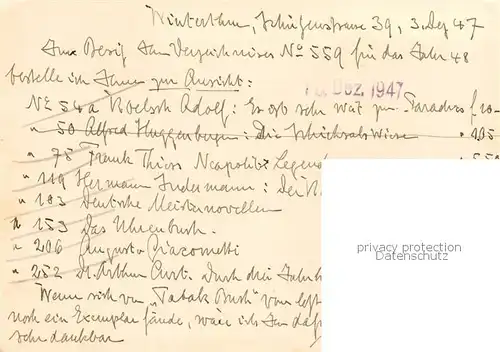 Winterthur, Schützenstrasse 39, 3. Dez 47
Im Besitz des Verzeichnisses No 559 für das Jahr 48
bestelle ich Ihnen zur Ansicht:
10. Dez. 1947
No 54a Koelsch Adolf: Es ist sehr weit zum Paradies fro-
" 50 Alfred Huggenberger: Die Schicksalswiese " 105
" 78 Frank Thiess Neapolit. Legende
" 119 Hermann Sudermann: Der
" 183 Deutsche Meisternovellen
" 153 Das Uhrenbuch.
" 206 Augusto Giacometti
" 252 Dr. Arthur Curti. Durch drei Jahrh
Wenn sich vom "Tabak Buch" vom
noch ein Exemplar fände, wäre ich Ihnen
sehr dankbar
privacy protection
Datenschutz